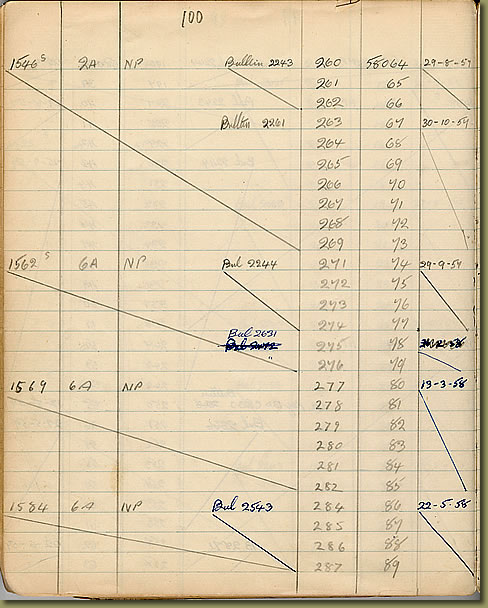 100
1546 S 2A NP Bulltin 2243 260 58064 29-8-57
261 65
262 66
Bulltin 2261 263 67 30-10-57
264 68
265 69
266 70
267 71
268 72
269 73
1562 S 6A NP Bul 2244 271 74 29-9-57
272 75
273 76
274 77
Bul 2631
275 78
276 79
1569 6A NP 277 80 13-3-58
278 81
279 82
280 83
281 84
282 85
1584 6A NP Bul 2543 284 86 22-5-58
285 87
286 88
287 89